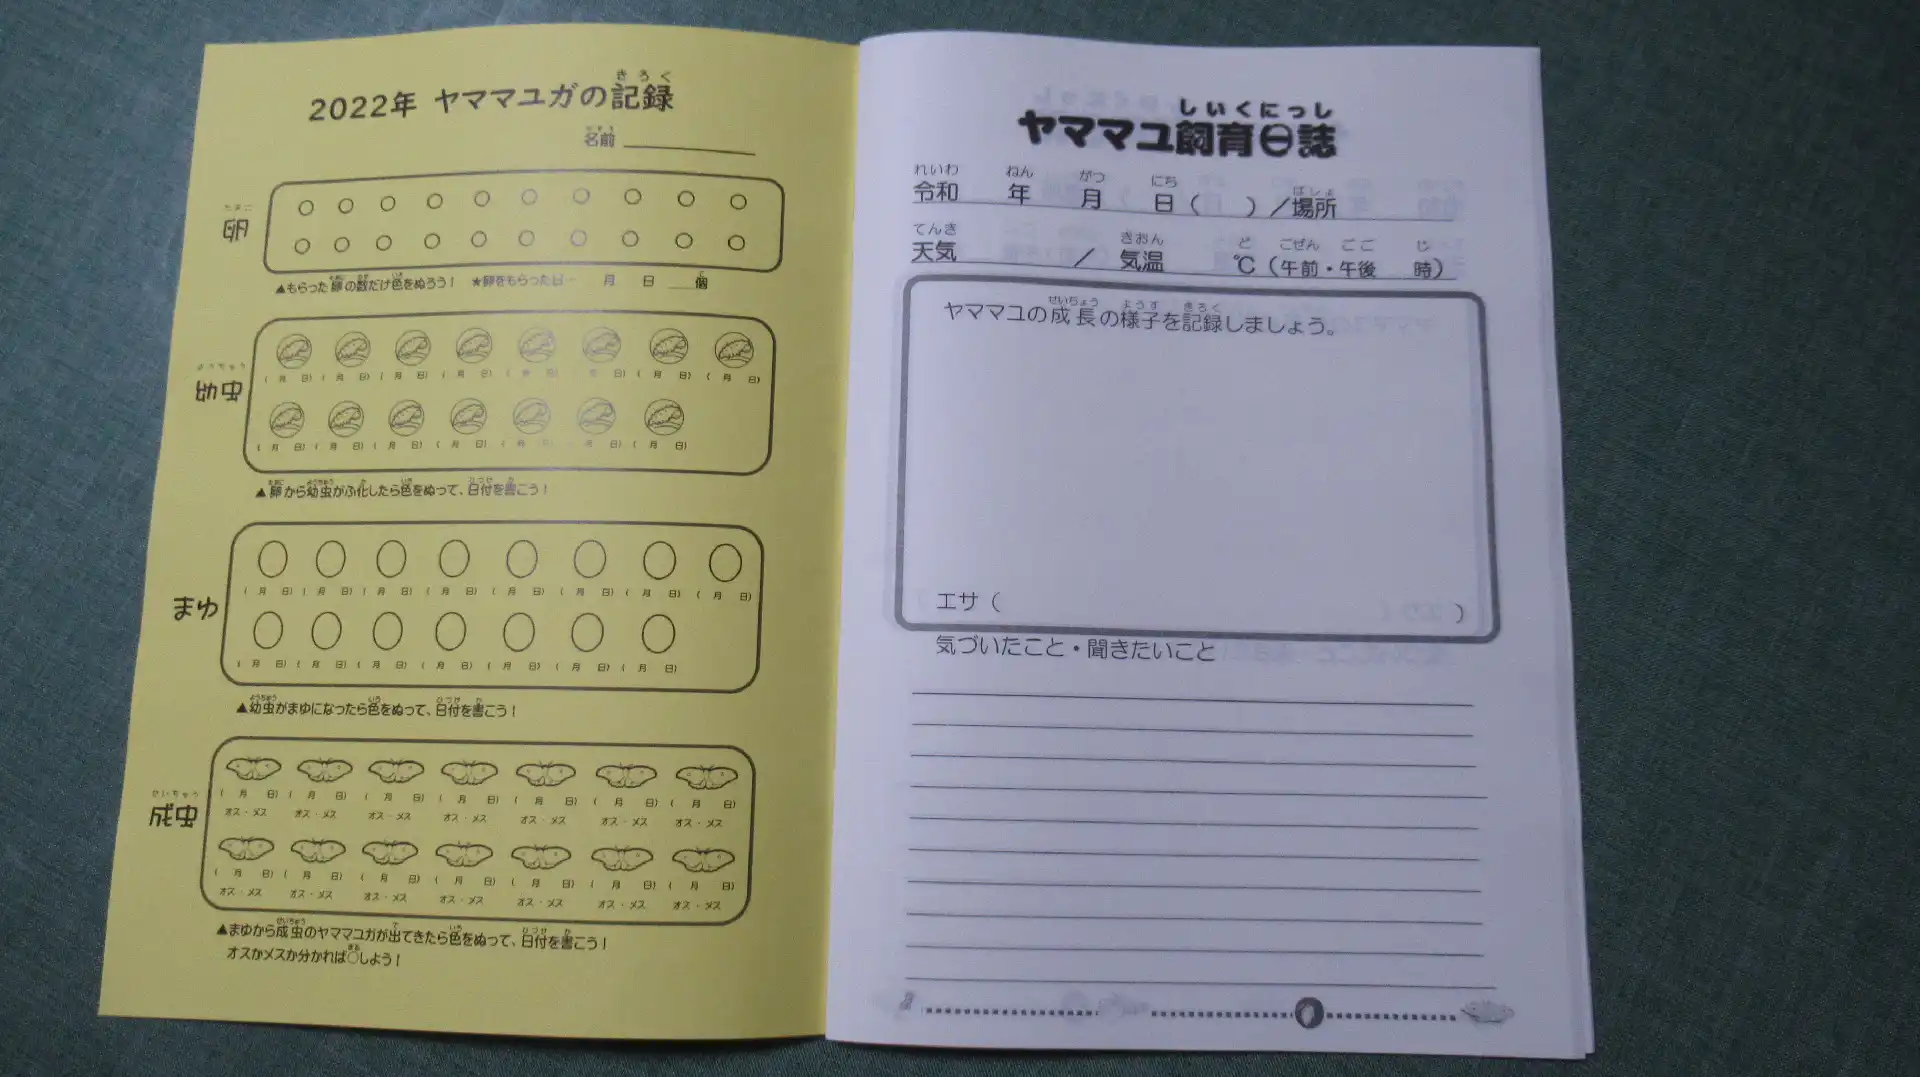 2022年 ヤママユガの記録
きろく
名前
卵
たまご
▲もらった卵の数だけ色をぬろう！ ★卵をもらった日… 月 日 個
幼虫
ようちゅう
( 月 日) ( 月 日) ( 月 日) ( 月 日) ( 月 日) ( 月 日) ( 月 日) ( 月 日)
( 月 日) ( 月 日) ( 月 日) ( 月 日) ( 月 日) ( 月 日) ( 月 日)
▲卵から幼虫がふ化したら色をぬって、日付を書こう！
まゆ
( 月 日) ( 月 日) ( 月 日) ( 月 日) ( 月 日) ( 月 日) ( 月 日) ( 月 日)
( 月 日) ( 月 日) ( 月 日) ( 月 日) ( 月 日) ( 月 日) ( 月 日)
▲幼虫がまゆになったら色をぬって、日付を書こう！
成虫
せいちゅう
( 月 日) ( 月 日) ( 月 日) ( 月 日) ( 月 日) ( 月 日) ( 月 日)
オス・メス オス・メス オス・メス オス・メス オス・メス オス・メス オス・メス
( 月 日) ( 月 日) ( 月 日) ( 月 日) ( 月 日) ( 月 日) ( 月 日)
オス・メス オス・メス オス・メス オス・メス オス・メス オス・メス オス・メス
▲まゆから成虫のヤママユガが出てきたら色をぬって、日付を書こう！
オスかメスか分かれば○しよう！
しいくにっし
ヤママユ飼育日誌
れいわ ねん がつ にち ばしょ
令和 年 月 日（ ）／場所
てんき きおん ど ごぜん ごご じ
天気 ／ 気温 ℃（午前・午後 時）
せいちょう ようす きろく
ヤママユの成長の様子を記録しましょう。
エサ（ ）
気づいたこと・聞きたいこと